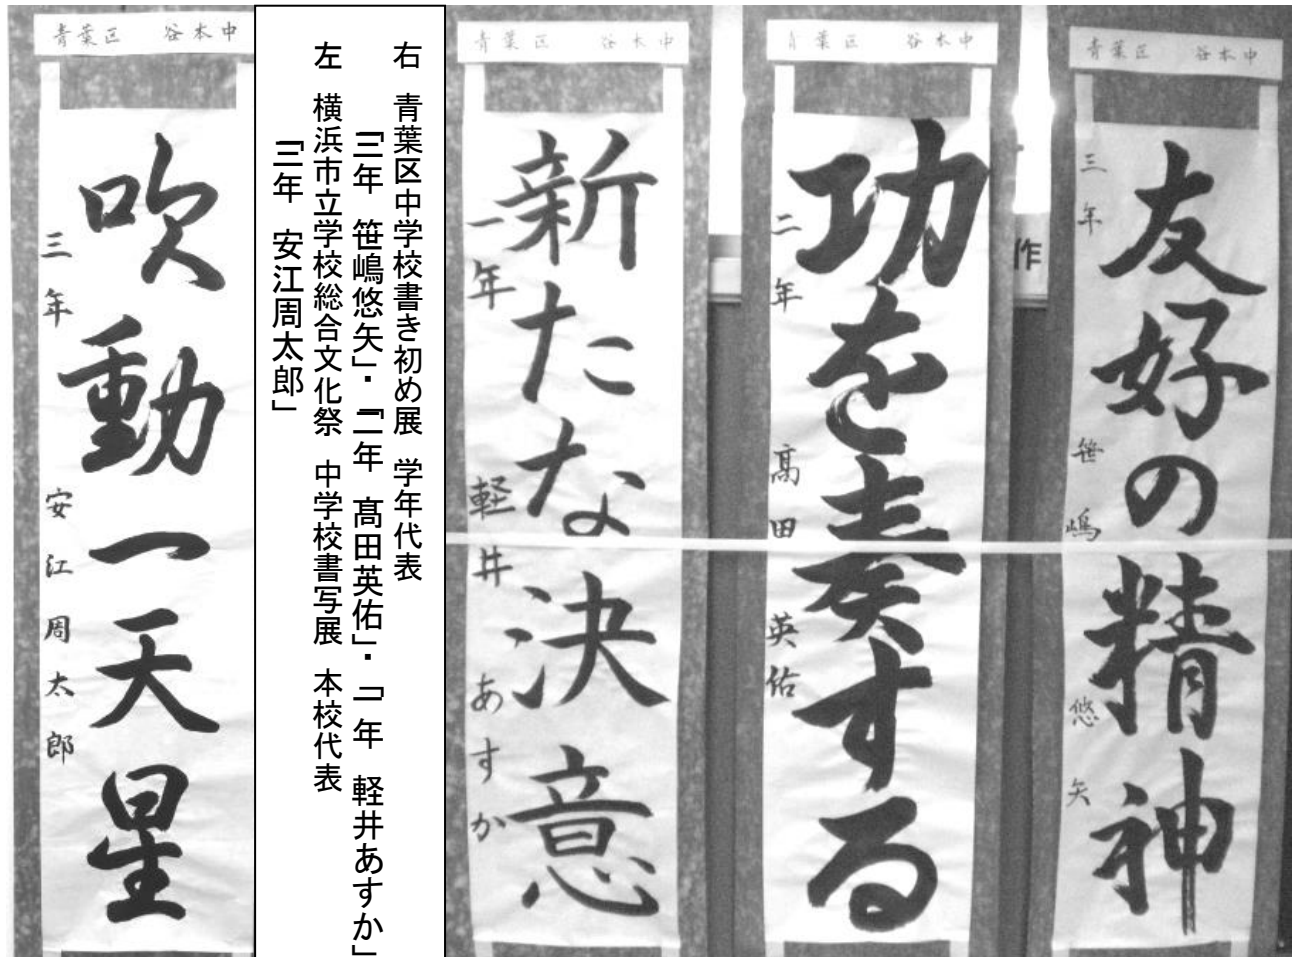 青葉区 谷本中
友好の精神
三年 笹嶋 悠矢
青葉区 谷本中
功を奏する
二年 髙田 英佑
作
青葉区 谷本中
新たな決意
一年 軽井 あすか
右 青葉区中学校書き初め展 学年代表
「三年 笹嶋悠矢」・「二年 髙田英佑」・「一年 軽井あすか」
左 横浜市立学校総合文化祭 中学校書写展 本校代表
「三年 安江周太郎」
青葉区 谷本中
吹動一天星
三年 安江周太郎